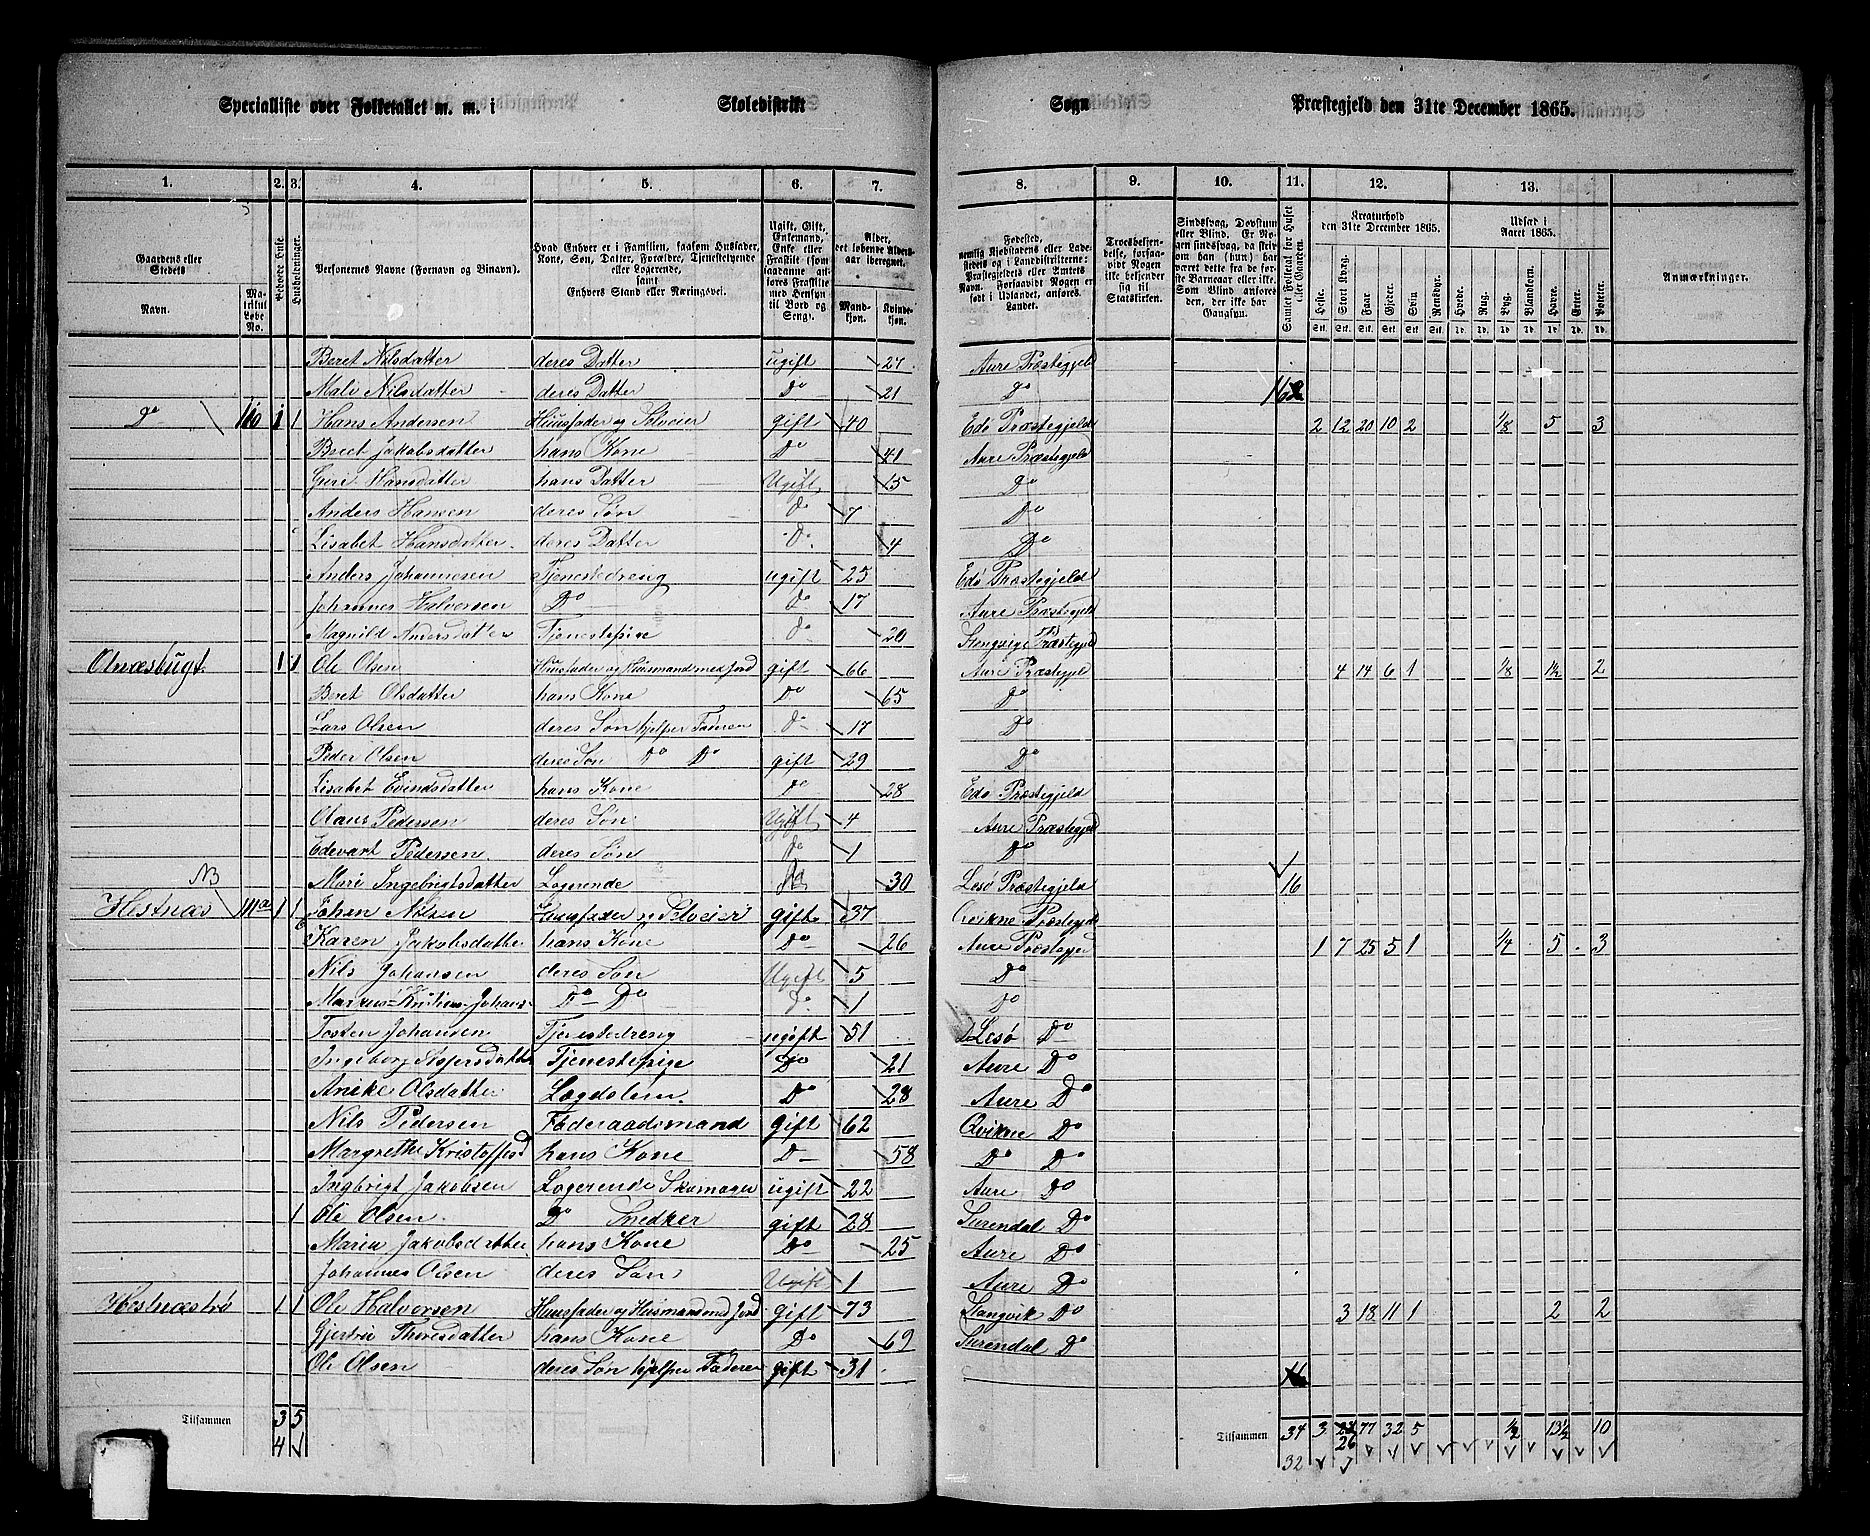 Specialliste over Folketallet m. m. i Skoledistrikt Sogn Præstegjeld den 31te December 1865.
1. 2. 3. 4. 5. 6. 7. 8. 9. 10. 11. 12. 13.
Gaardens eller Stedets Navn. Matrikul Løbe No. Beboede Huse. Husholdninger. Personernes Navne (Fornavn og Tilnavn). Hvad Enhver er i Familien, saasom Husfader, Kone, Søn, Datter, Forældre, Tjenestetyende eller Logerende, samt Enhvers Stand eller Næringsvei. Ugift, Gift, Enkemand, Enke eller Fraskilt (saadanne anføres Fraskilte med Hensyn til Bord og Seng). Alder, det løbende Aldersaar iberegnet. Mandkjøn. Kvindekjøn. Fødested, nemlig Kjøbstadens eller Ladestedets og i Landdistrikterne: Præstegjeldets eller Amtets Navn. Forsaavidt Nogen er født i Udlandet, anføres Landet. Troesbekjendelse, forsaavidt Nogen ikke bekjender sig til Statskirken. Sindssvag, Døvstum eller Blind. Samlet Folketal for Huset eller Gaarden. Kreaturhold den 31te December 1865. Heste. Stort Kvæg. Faar. Gjeder. Svin. Rensdyr. Udsæd i Aaret 1865. Hvede. Rug. Byg. Blandkorn. Havre. Erter. Poteter. Anmærkninger.
Beret Nilsdatter deres Datter ugift 27 Aure Præstegjeld
Mali Nilsdatter deres Datter Do 21 Do
Do 110 1 1 Hans Andersen Huusfader og Selveier gift 40 Edø Præstegjeld 2 12 20 10 2 1/8 5 3
Beret Jakobsdatter hans Kone Do 41 Aure Præstegjeld
Guri Hansdatter hans Datter Ugift 15 Do
Anders Hansen deres Søn do 7 Do
Lisabet Hansdatter deres Datter Do 4 Do
Anders Johannesen Tjenestedreng ugift 25 Edø Præstegjeld
Johannes Halvorsen Do do 17 Aure Præstegjeld
Magnild Andersdatter Tjenestepige do 20 Stangvige Præstegjeld
Olnæsbugt 1 1 Ole Olsen Huusfader og Huusmand med Jord gift 66 Aure Præstegjeld 4 14 6 1 1/8 1½ 2
Beret Olsdatter hans Kone Do 65 Do
Lars Olsen deres Søn hjelper Faderen Do 17 Do
Peder Olsen deres Søn Do Do gift 29 Do
Lisabet Evindsdatter hans Kone do 28 Edø Præstegjeld
Olaus Pedersen deres Søn Ugift 4 Aure Præstegjeld
Edevart Pedersen deres Søn do 1 Do
NB Mari Ingebrigtsdatter Logerende 30 Lesø Præstegjeld 16
Hestnæs 111a 1 1 Johan Nilsen Huusfader og Selveier gift 37 Qvikne Præstegjeld
Karen Jakobsdatter hans Kone Do 26 Aure Præstegjeld 1 7 25 5 1 1/4 5 3
Nils Johansen deres Søn Ugift 5 Do
Markus Kristian Johans Do Do Do 1 Do
Tosten Johansen Tjenestedreng ugift 51 Lesø Do
Ingeborg Tjenestepige Do 21 Aure Do
Anike Olsdatter Lægdslem Do 28 Aure Do
Nils Pedersen Føderaadsmand gift 62 Qvikne Do
Margrethe Kristoffersd hans Kone Do 58 Do Do
Ingbrigt Jakobsen Logerende Skomager ugift 22 Aure Do
1 Ole Olsen Do Snedker gift 28 Surendal Do
Maria Jakobsdatter hans Kone Do 25 Aure Do
Johannes Olsen deres Søn Ugift 1 Aure Do
Hestnæstrø 1 1 Ole Halvorsen Huusfader og Huusmand med Jord gift 73 Stangvik Do 3 18 11 1 2 2
Gjertru Thoresdatter hans Kone Do 69 Surendal Do
Ole Olsen deres Søn hjelper Faderen gift 31
Tilsammen 3 5 Tilsammen 34 3 77 32 5 ½ 13½ 10
4 26
32